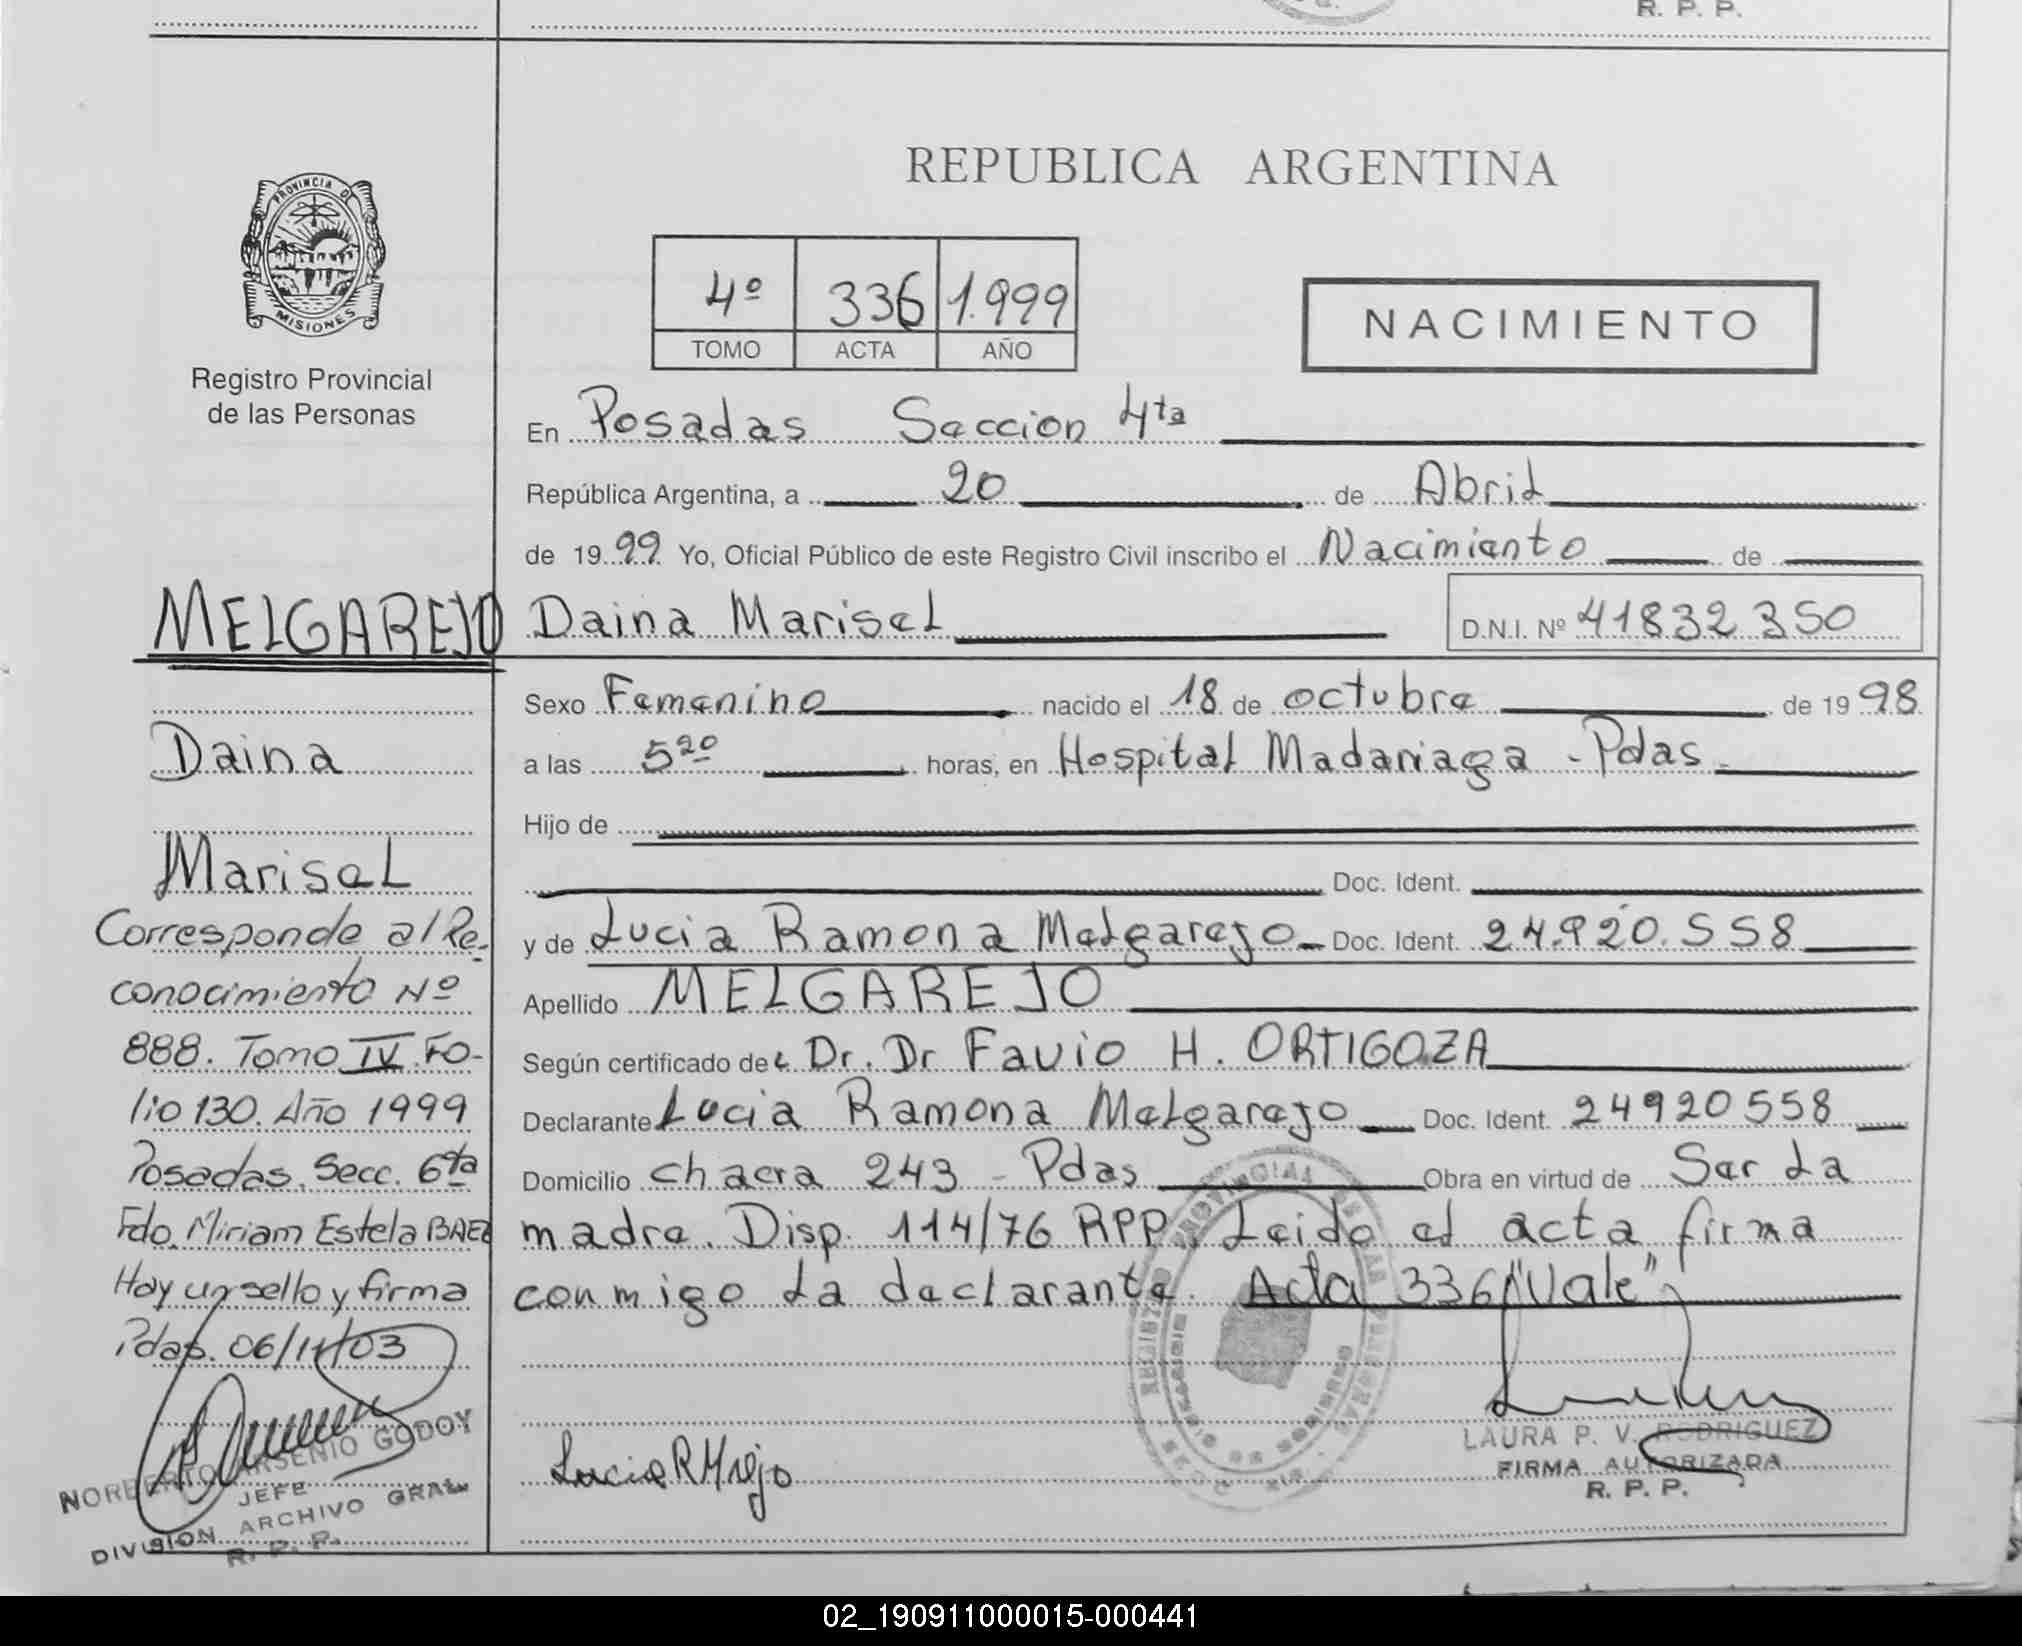 R. P. P.
REPUBLICA ARGENTINA
PROVINCIA DE
MISIONES
Registro Provincial
de las Personas
4º 336 1.999
TOMO ACTA AÑO
NACIMIENTO
En Posadas Seccion 4ta
República Argentina, a 20 de Abril
de 19 99 Yo, Oficial Público de este Registro Civil inscribo el Nacimiento de
MELGAREJO Daina Marisel D.N.I. Nº 41832350
Sexo Femenino nacido el 18 de octubre de 19 98
a las 5 20 horas, en Hospital Madariaga - Pdas
Hijo de
Doc. Ident.
y de Lucia Ramona Melgarejo Doc. Ident. 24.920.558
Apellido MELGAREJO
Según certificado de Dr. Dr Favio H. ORTIGOZA
Declarante Lucia Ramona Melgarejo Doc. Ident. 24920558
Domicilio chacra 243 - Pdas Obra en virtud de Ser La
madre. Disp. 114/76 RPP. Leido el acta firma
conmigo la declarante. Acta 336 "Vale"
Daina
Marisel
Corresponde al Re-
conocimiento Nº
888. Tomo IV. Fo-
lio 130. Año 1999
Posadas. Secc. 6ta
Fdo. Miriam Estela BAEZ
Hay un sello y firma
Pdas. 06/11/03
NORBERTO ARSENIO GODOY
JEFE
DIVISION ARCHIVO GRAL
R. P. P.
Lucia R Mrejo
REGISTRO PROVINCIAL DE LAS PERSONAS
LAURA P. V. RODRIGUEZ
FIRMA AUTORIZADA
R. P. P.
02_190911000015-000441